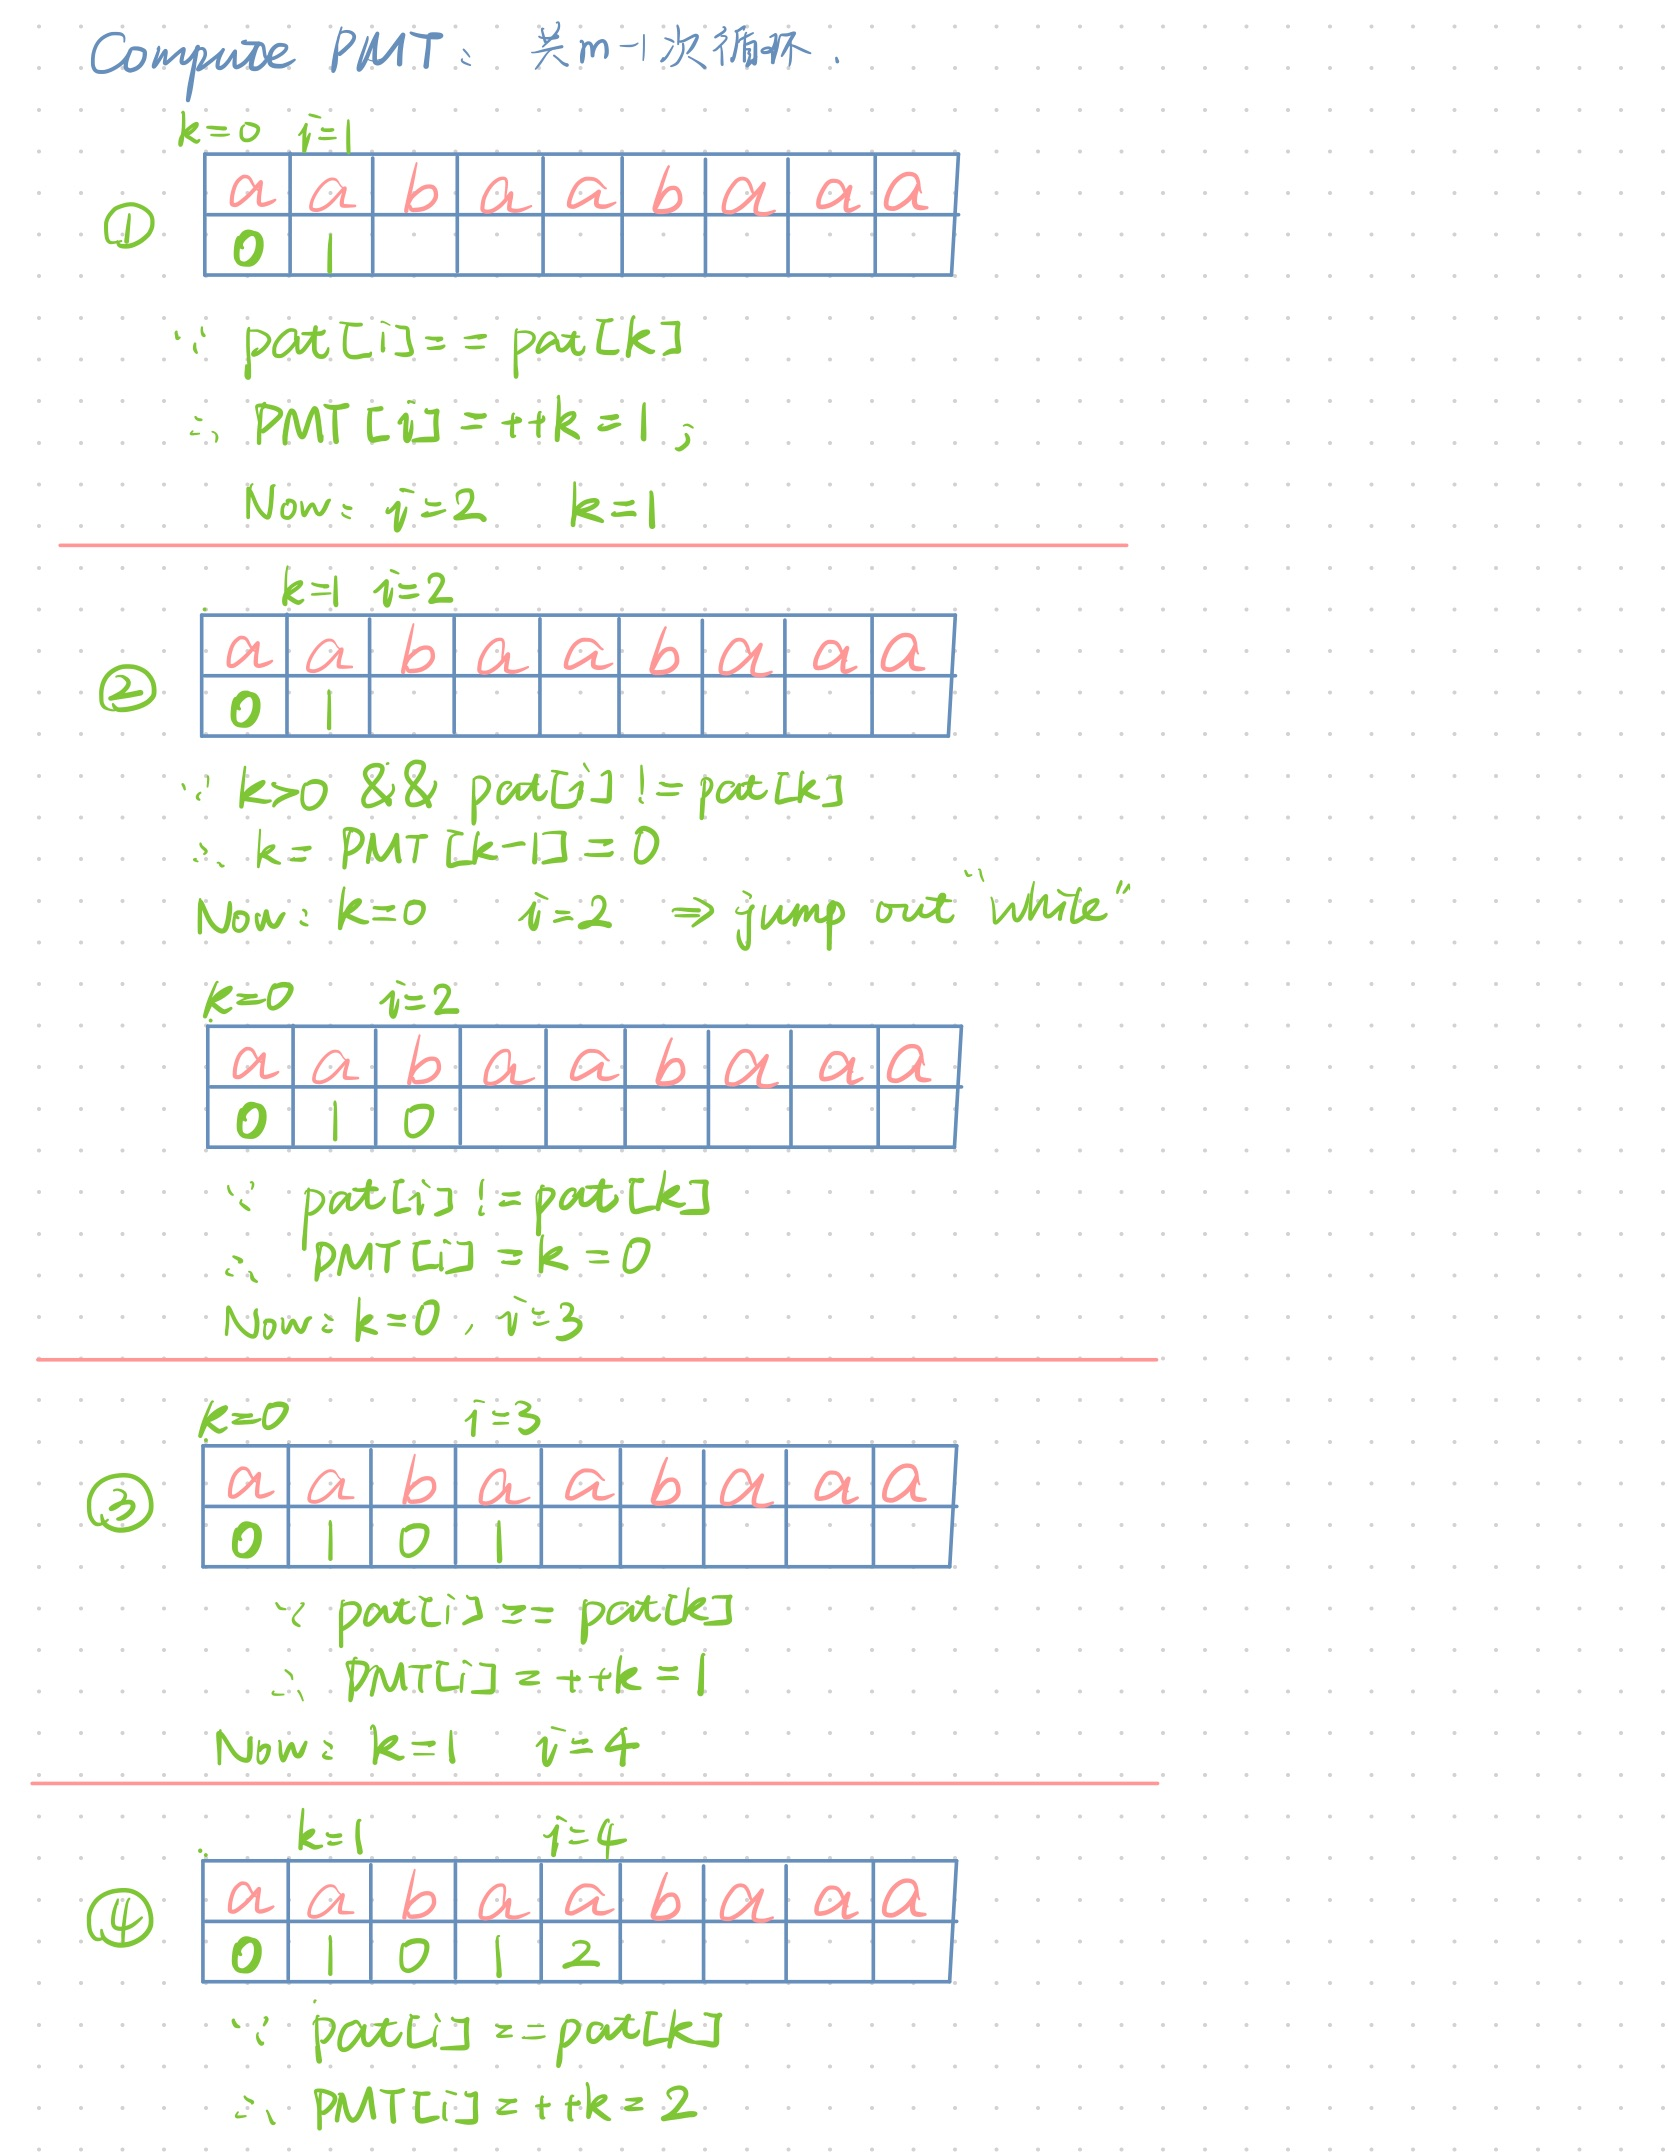 Compute PMT: 共m-1次循环.
k=0 i=1
① a a b a a b a a a
0 1
∵ pat[i]==pat[k]
∴ PMT[i]=++k=1;
Now: i=2 k=1
k=1 i=2
② a a b a a b a a a
0 1
∵ k>0 && pat[i]!=pat[k]
∴ k= PMT[k-1]=0
Now: k=0 i=2 ⇒ jump out "while"
k=0 i=2
a a b a a b a a a
0 1 0
∵ pat[i]!=pat[k]
∴ PMT[i]=k=0
Now: k=0, i=3
k=0 i=3
③ a a b a a b a a a
0 1 0 1
∵ pat[i]==pat[k]
∴ PMT[i]=++k=1
Now: k=1 i=4
k=1 i=4
④ a a b a a b a a a
0 1 0 1 2
∵ pat[i]==pat[k]
∴ PMT[i]=++k=2